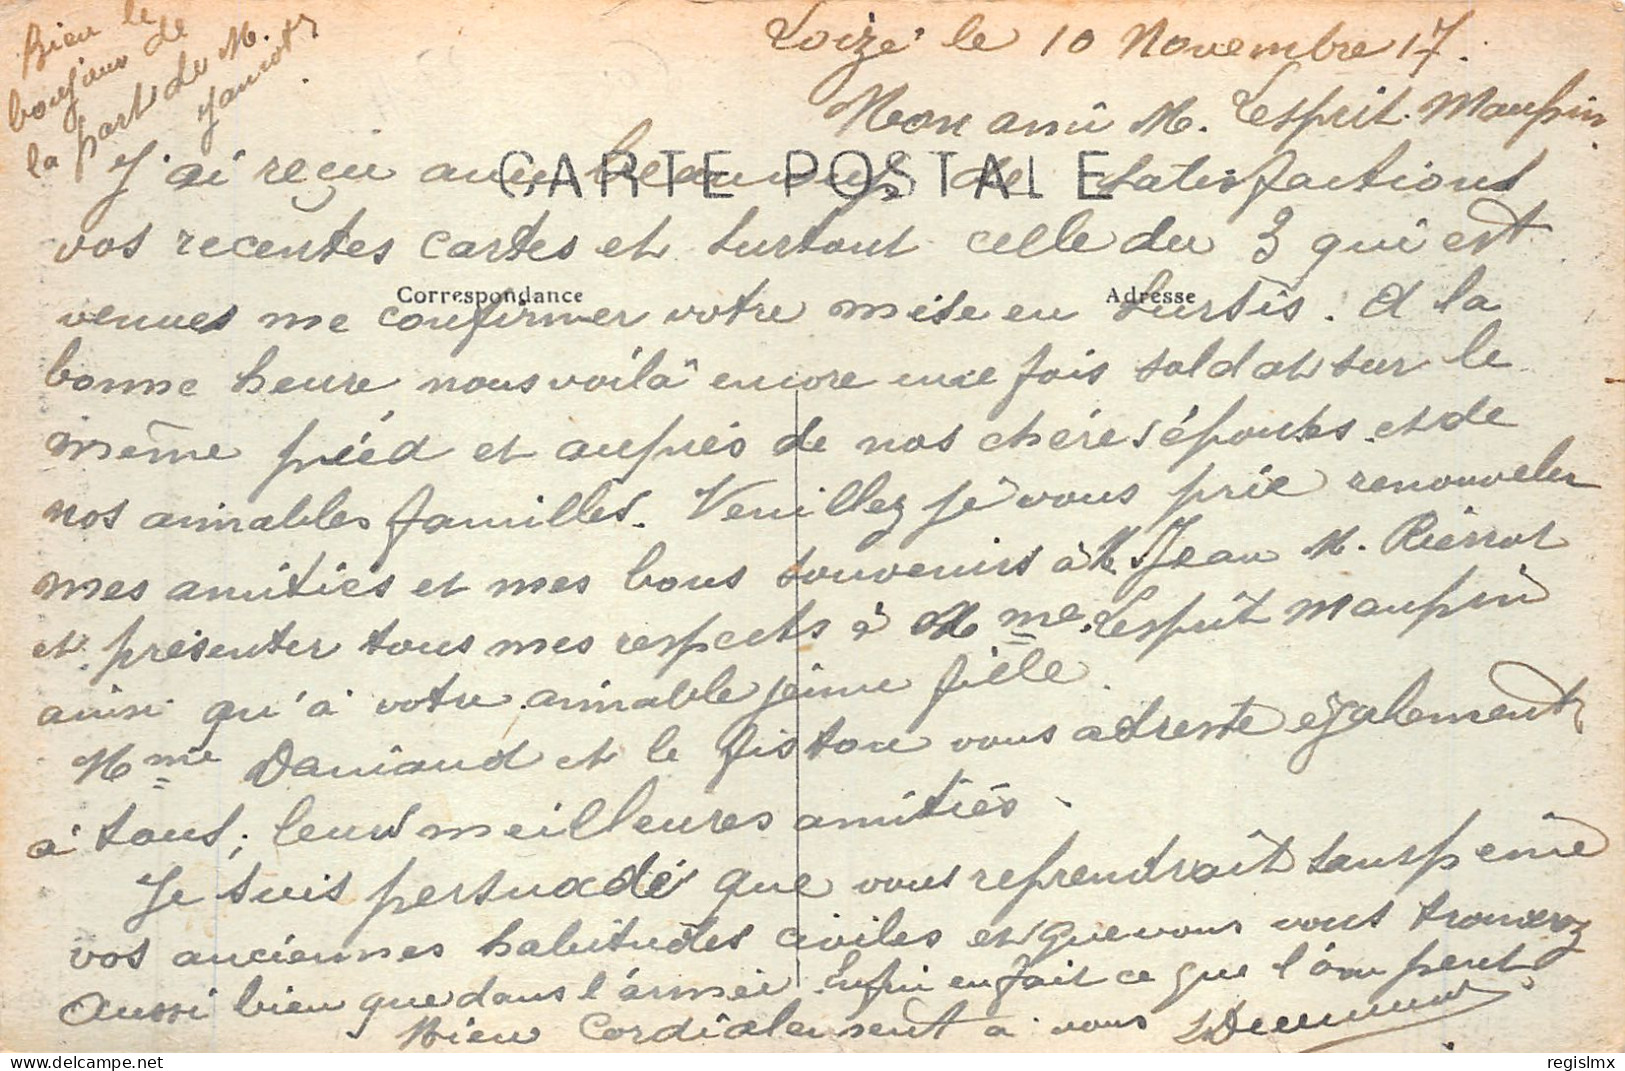 Bien le
boujour de
la part de M.
Jamot
Loizé le 10 Novembre 17.
Mon ami M. Lesprit Maupin.
CARTE POSTALE
J'ai reçu avec beaucoup de satisfactions
vos recentes cartes et surtout celle du 3 qui est
Correspondance
Adresse
venues me confirmer votre mise en sursis. A la
bonne heure nous voilà encore une fois soldat sur le
même piéd et auprés de nos chéres épouses et de
nos aimables familles. Veuillez je vous prie renouveler
mes amitiés et mes bons souvenirs à M. Jean M. Pierrot
et présenter tous mes respects à Mme Lesprit Maupin
ainsi qu'à votre aimable jeune fille.
Mme Daniaud et le fiston vous adresse également
à tous, leurs meilleures amitiés.
Je suis persuadé que vous reprendrait sans peine
vos anciennes habitudes civiles et que vous vous trouverez
aussi bien que dans l'armée. Enfin en fait ce que l'on peut.
Bien Cordialement a vous
regislmx